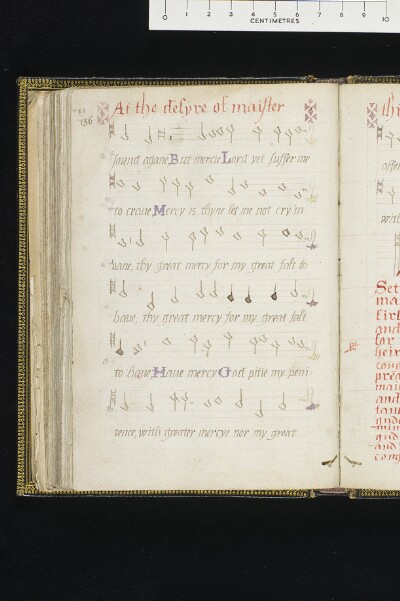 0 1 2 3 4 5 6 7 8 9 10
CENTIMETRES
136
At the desyre of maister
sound agane, But mercie Lord yet suffer me
to craue, Mercy is thyne let me not cry in
vane, thy great mercy for my great falt to
haue, thy great mercy for my great falt
to haue, Haue mercy God pitie my peni
tence, with greater mercye nor my great
thi
offen
with
Set
mai
kirk
and
for
heir
cong
prea
mai
and
tant
and
com